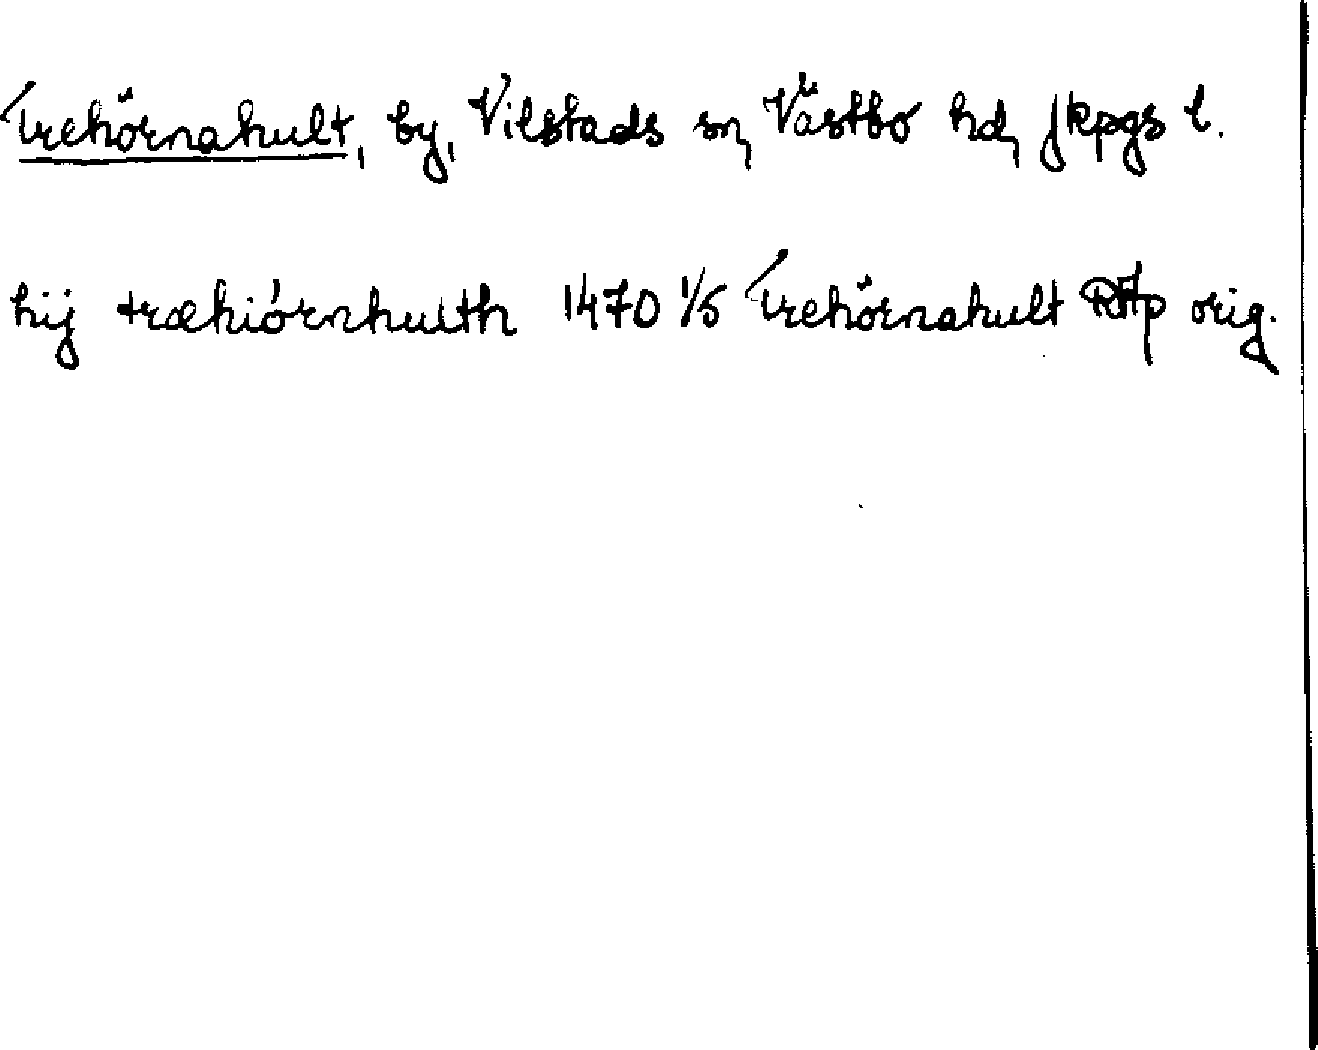 Trehörnahult, by, Vilstads sn, Västbo hd, Jkpgs l.
hij træhiórnhulth 1470 1/5 Trehörnahult RAp orig.